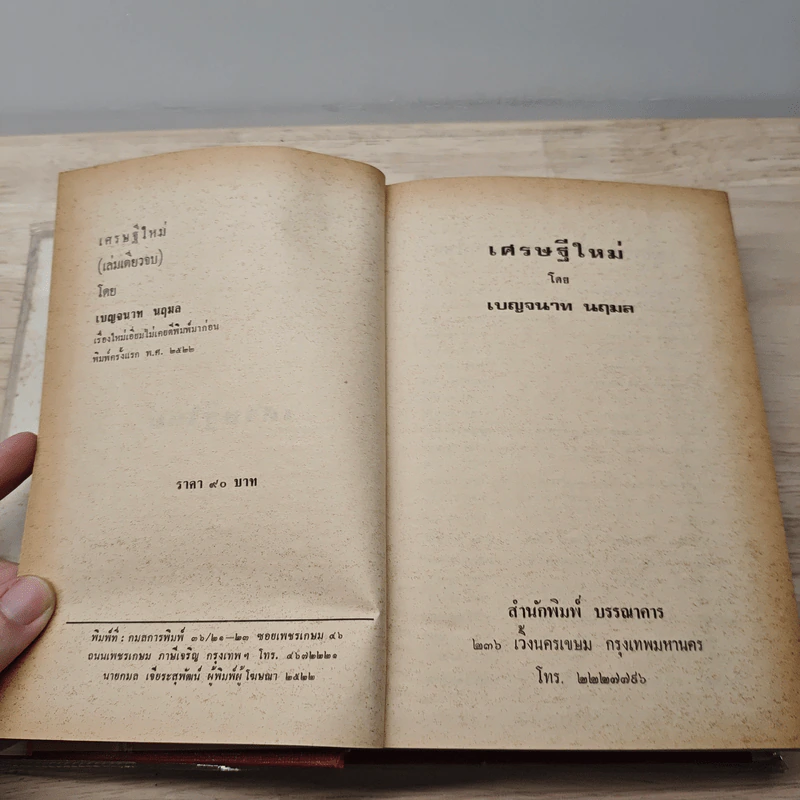 เศรษฐีใหม่
(เล่มเดียวจบ)
โดย
เบญจนาท นฤมล
เรื่องใหม่เอี่ยมไม่เคยตีพิมพ์มาก่อน
พิมพ์ครั้งแรก พ.ศ. ๒๕๒๒
ราคา ๙๐ บาท
พิมพ์ที่ : กมลการพิมพ์ ๓๖/๒๑—๒๓ ซอยเพชรเกษม ๔๖
ถนนเพชรเกษม ภาษีเจริญ กรุงเทพ ฯ โทร. ๔๖๗๒๒๒๑
นายกมล เจียระสุพัฒน์ ผู้พิมพ์ผู้โฆษณา ๒๕๒๒
เศรษฐีใหม่
โดย
เบญจนาท นฤมล
สำนักพิมพ์ บรรณาคาร
๒๓๖ เวิ้งนครเขษม กรุงเทพมหานคร
โทร. ๒๒๒๗๗๙๖